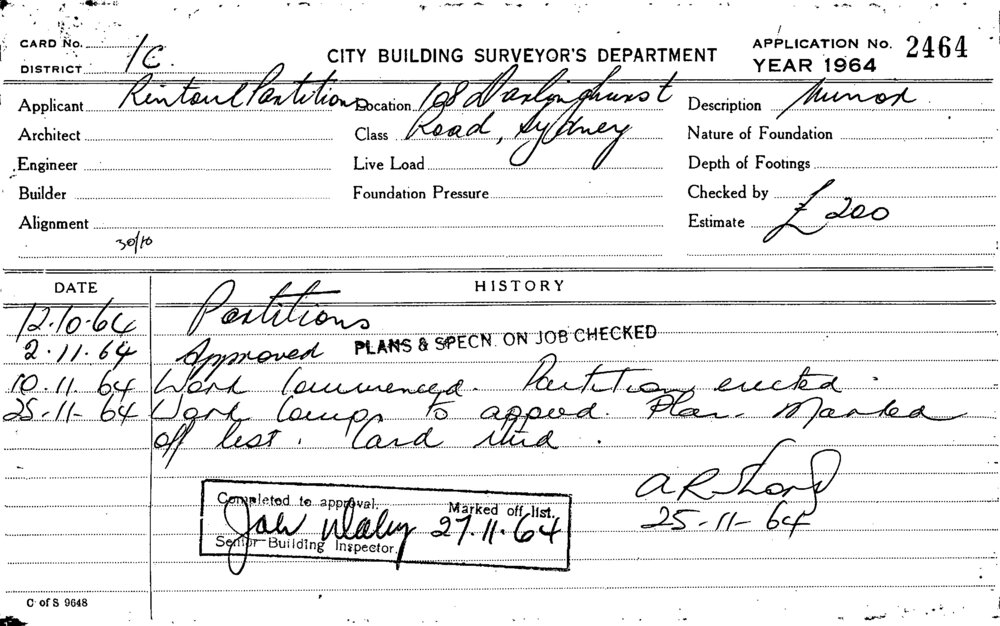 CARD No. 1C
DISTRICT
CITY BUILDING SURVEYOR'S DEPARTMENT
APPLICATION No. 2464
YEAR 1964
Applicant Rintoul Partitions Location 108 Darlinghurst Description Minor
Architect Class Road, Sydney Nature of Foundation
Engineer Live Load Depth of Footings
Builder Foundation Pressure Checked by
Alignment Estimate £ 200
30/10
DATE HISTORY
12.10.64 Partitions
2.11.64 Approved PLANS & SPECN. ON JOB CHECKED
10.11.64 Work commenced. Partition erected.
25-11-64 Work comp. to appd. Plan. Marked
off list. Card
25-11-64
Completed to approval. Marked off list.
27.11.64
Senior Building Inspector.
C of S 9648